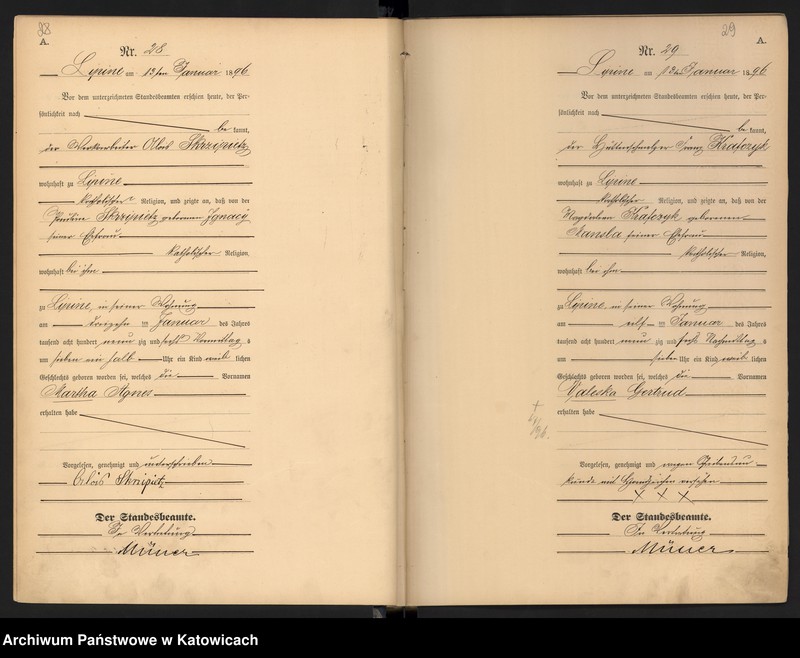 28
A.
Nr. 28
Lipine am 13ten Januar 1896
Vor dem unterzeichneten Standesbeamten erschien heute, der Per-
sönlichkeit nach
be kannt,
der Werkarbeiter Alois Skrzipietz
wohnhaft zu Lipine
katholischer Religion, und zeigte an, daß von der
Skrzipietz geborenen Ignacy
seiner Ehefrau
katholischer Religion,
wohnhaft bei ihm
zu Lipine, in seiner Wohnung
am dreizehn ten Januar des Jahres
tausend acht hundert neun zig und sechs Vormittag s
um sieben ein halb Uhr ein Kind weib lichen
Geschlechts geboren worden sei, welches die Vornamen
Martha Agnes
erhalten habe
Vorgelesen, genehmigt und unterschrieben
Alois Skrzipietz
Der Standesbeamte.
In Vertretung
29
A.
Nr. 29
Lipine am 13ten Januar 1896
Vor dem unterzeichneten Standesbeamten erschien heute, der Per-
sönlichkeit nach
be kannt,
der Franz Krafczyk
wohnhaft zu Lipine
katholischer Religion, und zeigte an, daß von der
Magdalena Krafczyk geborenen
seiner Ehefrau
katholischer Religion,
wohnhaft bei ihm
zu Lipine in seiner Wohnung
am elf ten Januar des Jahres
tausend acht hundert neun zig und sechs Nachmittag s
um sieben Uhr ein Kind weib lichen
Geschlechts geboren worden sei, welches die Vornamen
Valeska Gertrud
erhalten habe
Vorgelesen, genehmigt und wegen Schreibensun-
kunde mit Handzeichen versehen
× × ×
Der Standesbeamte.
In Vertretung
Archiwum Państwowe w Katowicach